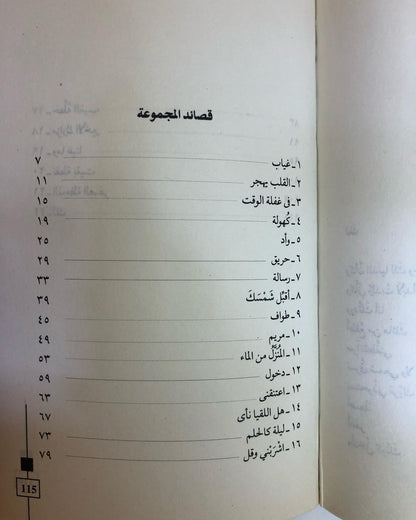 قصائد المجموعة
١ـ غياب ٧
٢ـ القلب يهجر ١١
٣ـ فى غفلة الوقت ١٥
٤ـ كُهولة ١٩
٥ـ وأد ٢٥
٦ـ حريق ٢٩
٧ـ رسالة ٣٣
٨ـ أقبُل شَمْسَكَ ٣٩
٩ـ طواف ٤٥
١٠ـ مريم ٤٩
١١ـ المُنَزَّلُ من الماء ٥٣
١٢ـ دخول ٥٩
١٣ـ اعتنقنى ٦٣
١٤ـ هل اللقيا نأى ٦٧
١٥ـ ليلة كالحلم ٧٣
١٦ـ اشْرَبْني وقل ٧٩
115